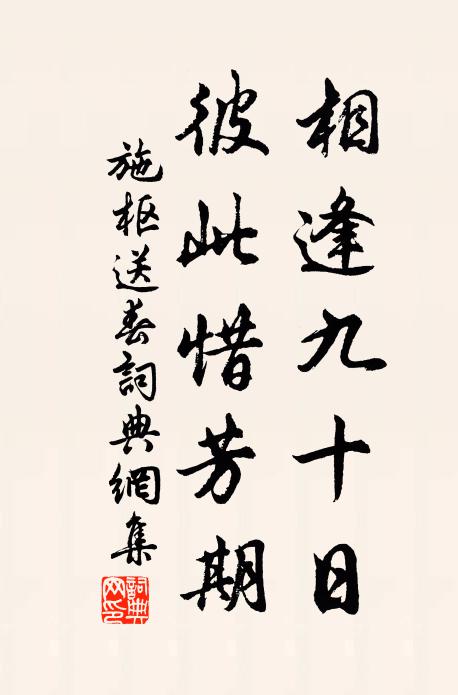 相逢九十日
彼此惜芳期
施枢送春詞典網集
詞典網印